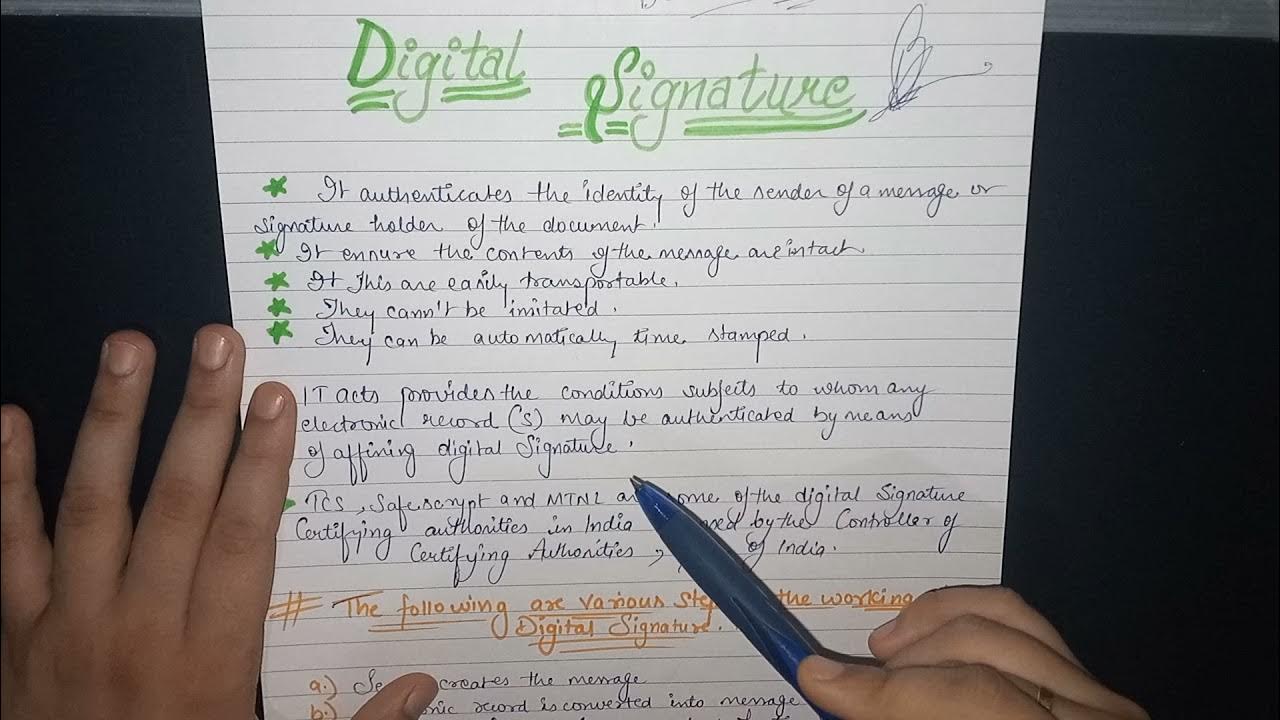 Digital
Signature
It authenticates the identity of the sender of a message or
signature holder of the document.
It ensure the contents of the message are intact.
It This are easily transportable.
They cann't be imitated.
They can be automatically time stamped.
IT acts provides the conditions subjects to whom any
electronic record (s) may be authenticated by means
of affining digital Signature.
TCS, Safescrypt and MTNL of the digital Signature
Certifying authorities in India by the Controller of
Certifying Authorities, of India.
# The following are various the working
Digital Signature.
a.) creates the message
b.) record is converted into message